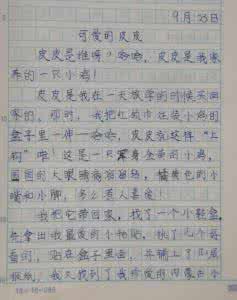 9月23日
可爱的皮皮
皮皮是谁呀？哈哈，皮皮是我家
养的一只小鸡！
皮皮是我在一天放学的时候买回
家的。那时，我把红领巾在装小鸡的
盒子里一伸一哈哈，皮皮就这样“上
钩”啦！这是一只浑身金黄的小鸡，
圆圆的大眼睛滴溜溜转，橘黄色的小
嘴和小脚，多么惹人喜爱！
我把它带回家，找了一个小鞋盒，
先拿出我最爱的小粘贴，挑了几个好
看的，贴在盒子里面，并铺上了几层
报纸，我又找到了我